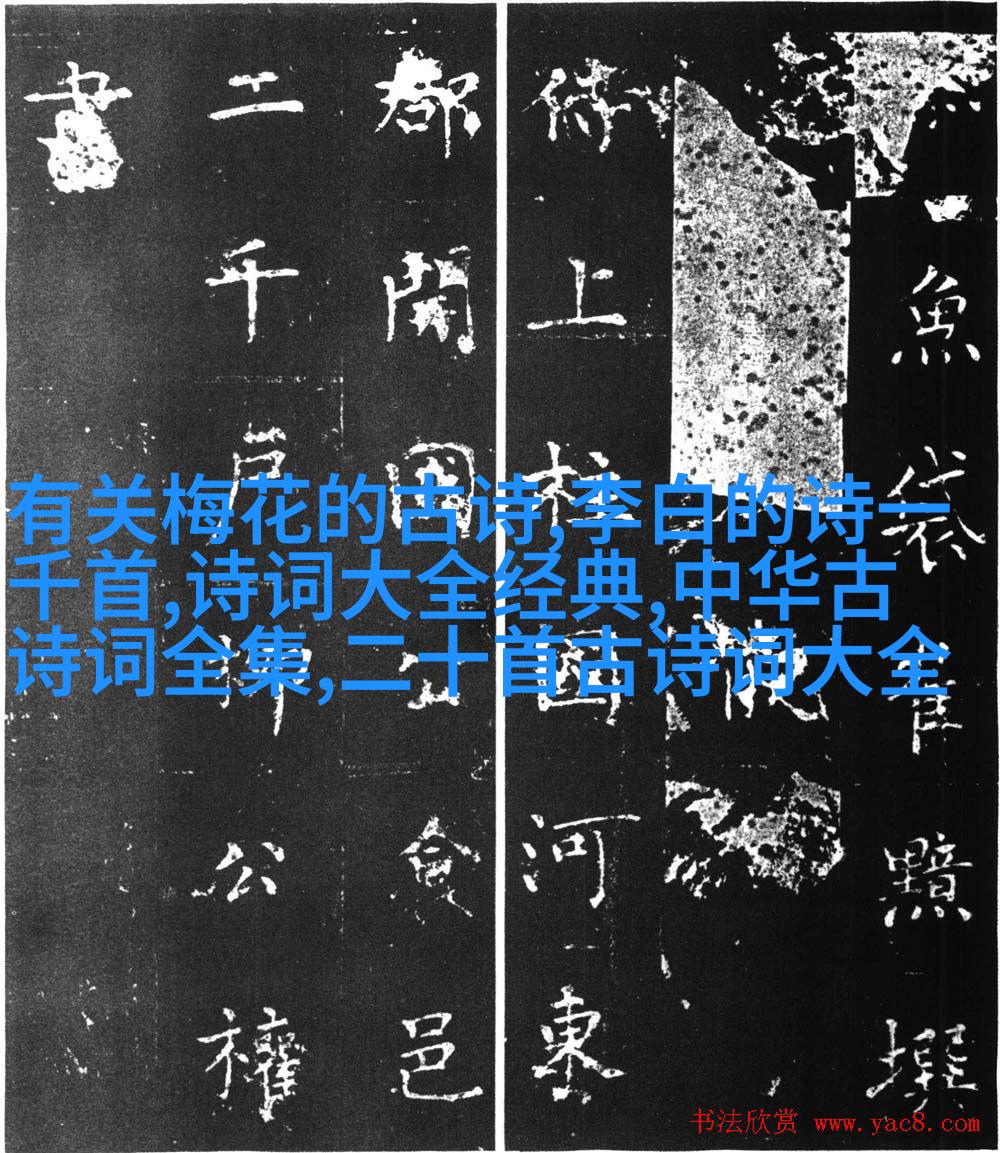 魚袋崔黯撰
侍上柱国河東
郡開国公食邑
二千戶柳公權
書
有关梅花的古诗,李白的诗一
千首,诗词大全经典,中华古
诗词全集,二十首古诗词大全
书法欣赏 www.yac8.com